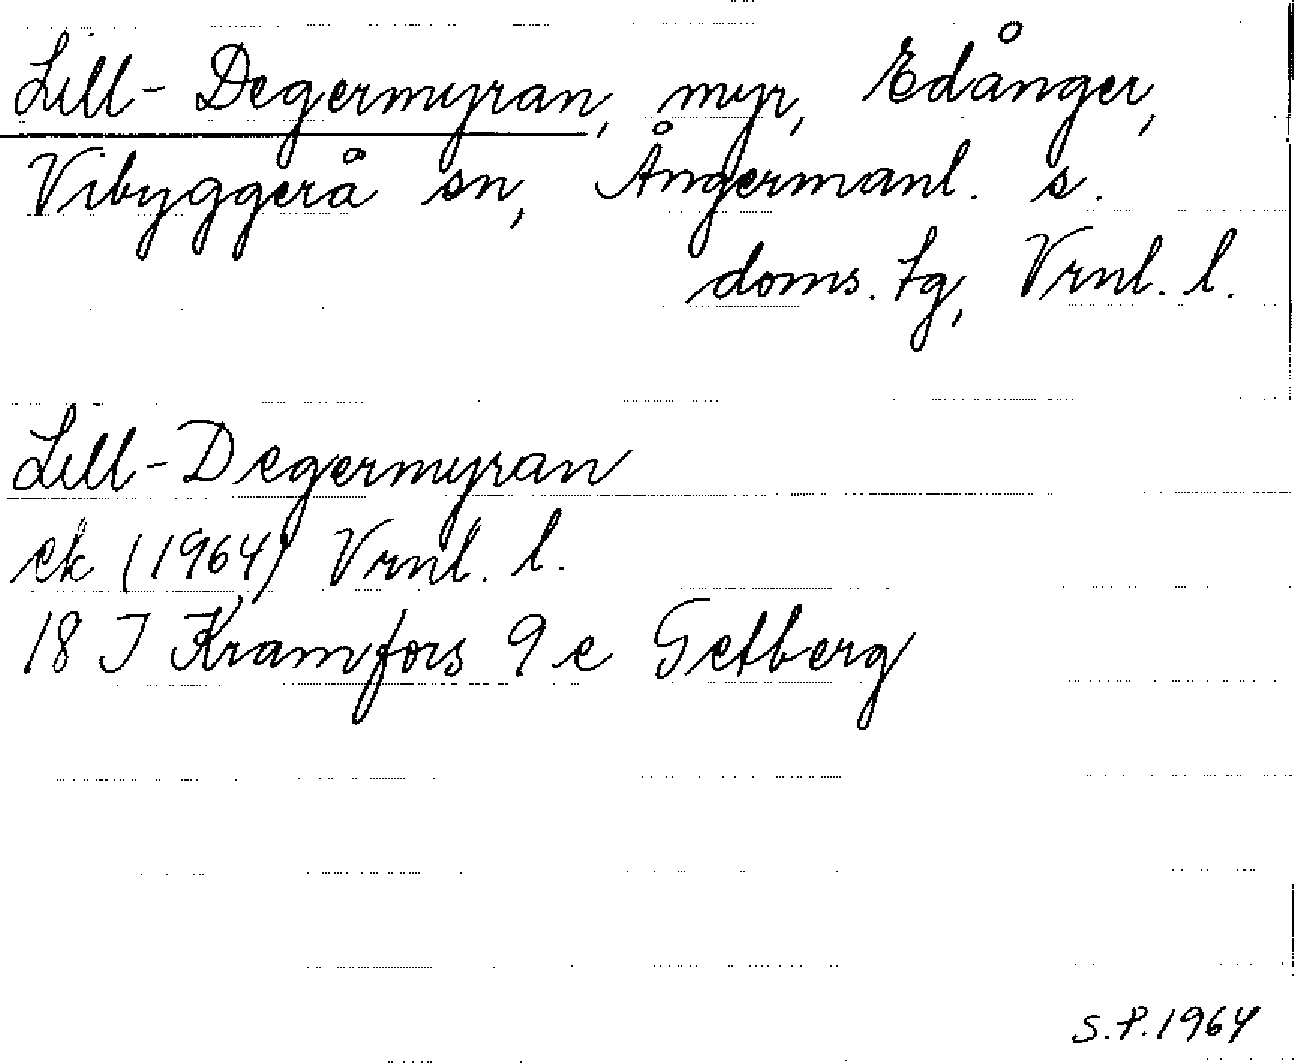 Lill-Degermyran, myr, Edånger,
Vibyggerå sn, Ångermanl. s.
doms. tg, Vrnl. l.
Lill-Degermyran
ek (1964) Vrnl. l.
18 J Kramfors 9 e Getberg
S.P. 1964